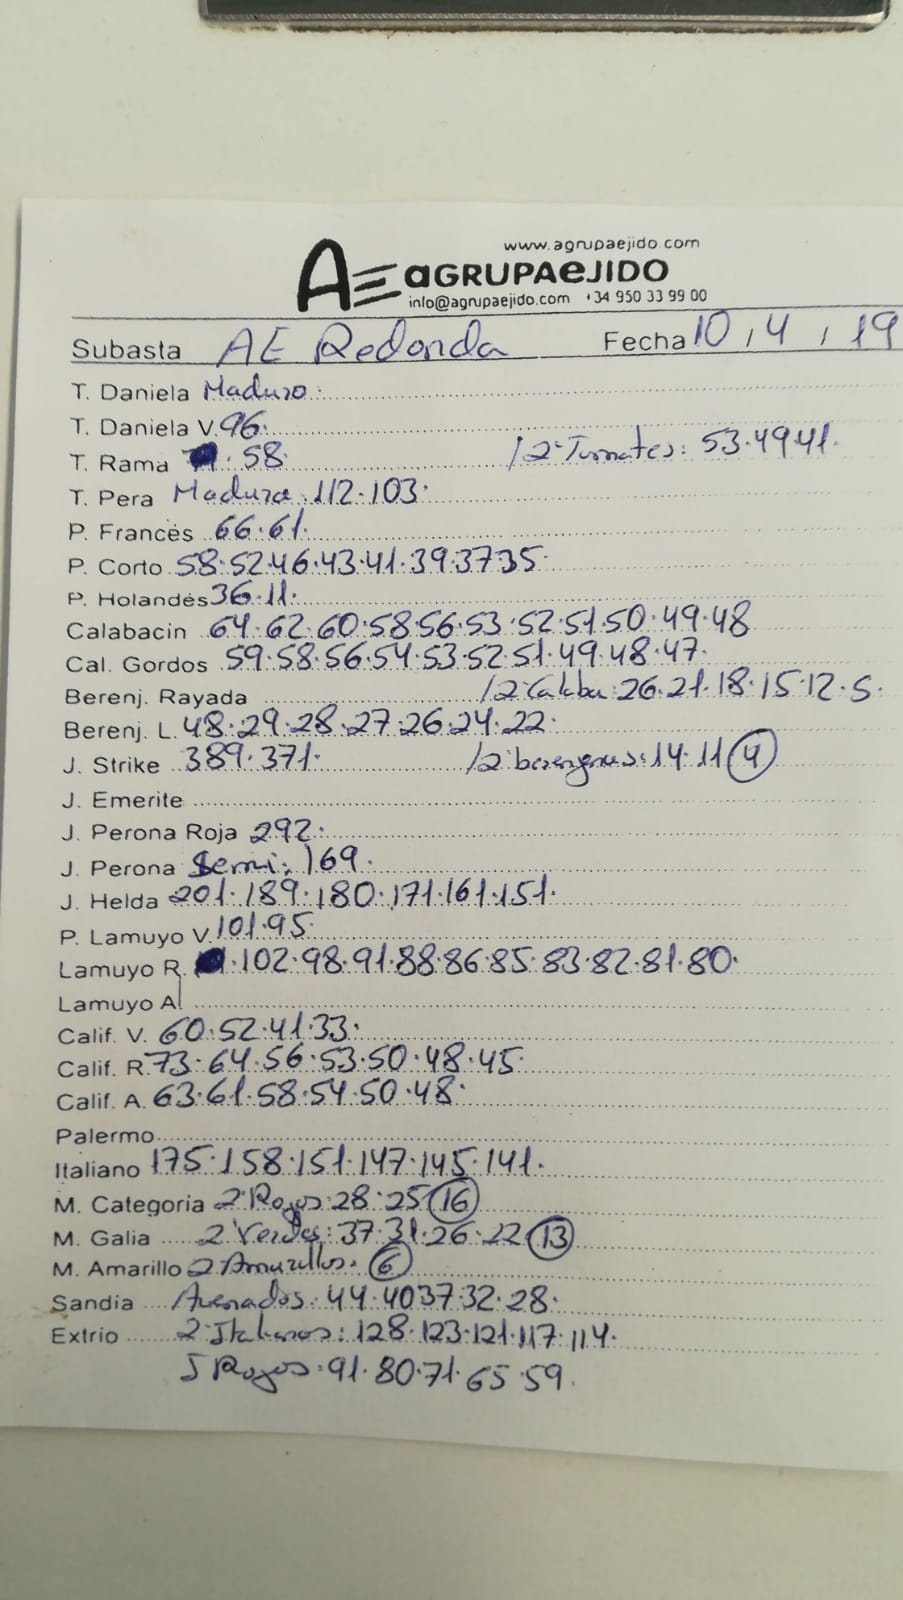 www.agrupaejido.com
AE aGRUPAeJIDO
info@agrupaejido.com +34 950 33 99 00
Subasta AE Redonda Fecha 10, 4, 19
T. Daniela Maduro.
T. Daniela V. 96.
T. Rama . 58. /2ª Tomates: 53.49.41.
T. Pera Madura. 112.103.
P. Francés 66.61.
P. Corto 58.52.46.43.41.39.37.35.
P. Holandés 36.11.
Calabacin 64.62.60.58.56.53.52.51.50.49.48
Cal. Gordos 59.58.56.54.53.52.51.49.48.47.
Berenj. Rayada /2ª Calaba: 26.21.18.15.12.5.
Berenj. L. 48.29.28.27.26.24.22.
J. Strike 389.371. /2ª berengenas: 14.11 (4)
J. Emerite
J. Perona Roja 292.
J. Perona Semi: 169.
J. Helda 201.189.180.171.161.151.
P. Lamuyo V. 101.95.
Lamuyo R. .102.98.91.88.86.85.83.82.81.80.
Lamuyo A
Calif. V. 60.52.41.33.
Calif. R. 73.64.56.53.50.48.45.
Calif. A. 63.61.58.54.50.48.
Palermo
Italiano 175.158.151.147.145.141.
M. Categoria 2ª Rojos: 28.25 (16)
M. Galia 2ª Verdes: 37.31.26.22 (13)
M. Amarillo 2ª Amarillos. (6)
Sandia Asenados: 44.40.37.32.28.
Extrio 2ª Italianos: 128.123.121.117.114.
5 Rojos. 91.80.71.65.59.